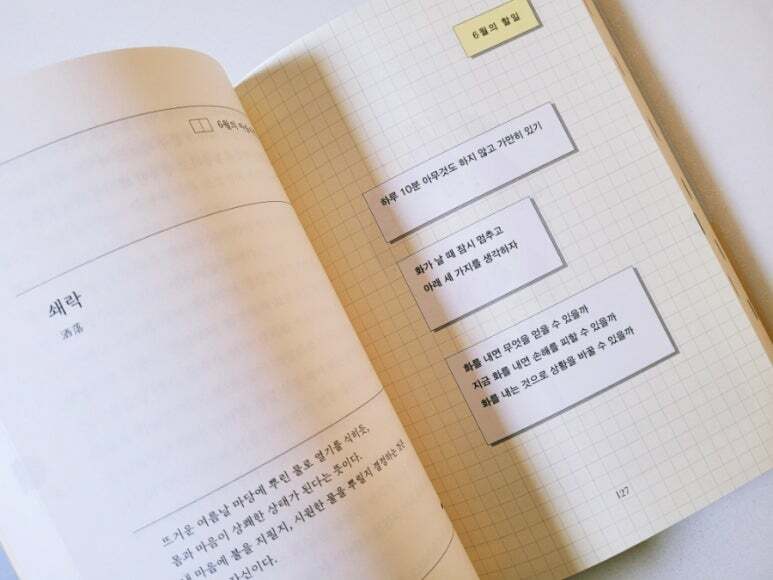 6월의
쇄락
洒落
뜨거운 여름날 마당에 뿌린 물로 열기를 식히듯,
몸과 마음이 상쾌한 상태가 된다는 뜻이다.
내 마음에 불을 지필지, 시원한 물을 뿌릴지 결정하는 것은
자신이다.
6월의 할일
하루 10분 아무것도 하지 않고 가만히 있기
화가 날 때 잠시 멈추고
아래 세 가지를 생각하자
화를 내면 무엇을 얻을 수 있을까
지금 화를 내면 손해를 피할 수 있을까
화를 내는 것으로 상황을 바꿀 수 있을까
127